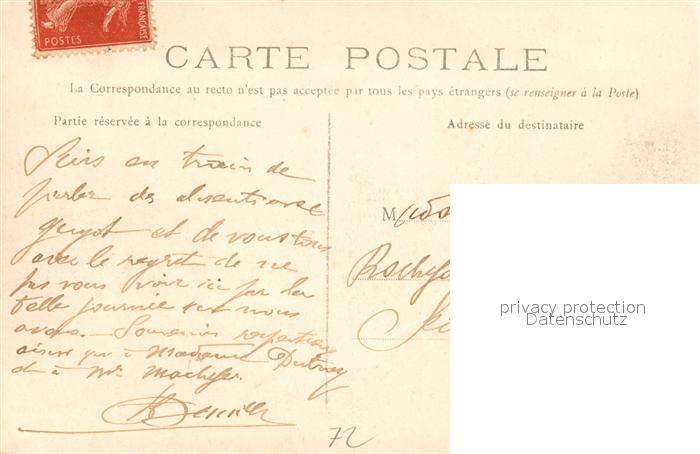 FRANÇAISE
POSTES
CARTE POSTALE
La Correspondance au recto n'est pas acceptée par tous les pays étrangers (se renseigner à la Poste)
Partie réservée à la correspondance
Adresse du destinataire
Suis en train de
parler des absents avec
et de vous tous
avec le regret de ne
pas vous voir ici par la
belle journée que nous
avons. Souvenirs respectueux
à Madame
et à Mr
M
privacy protection
Datenschutz
72